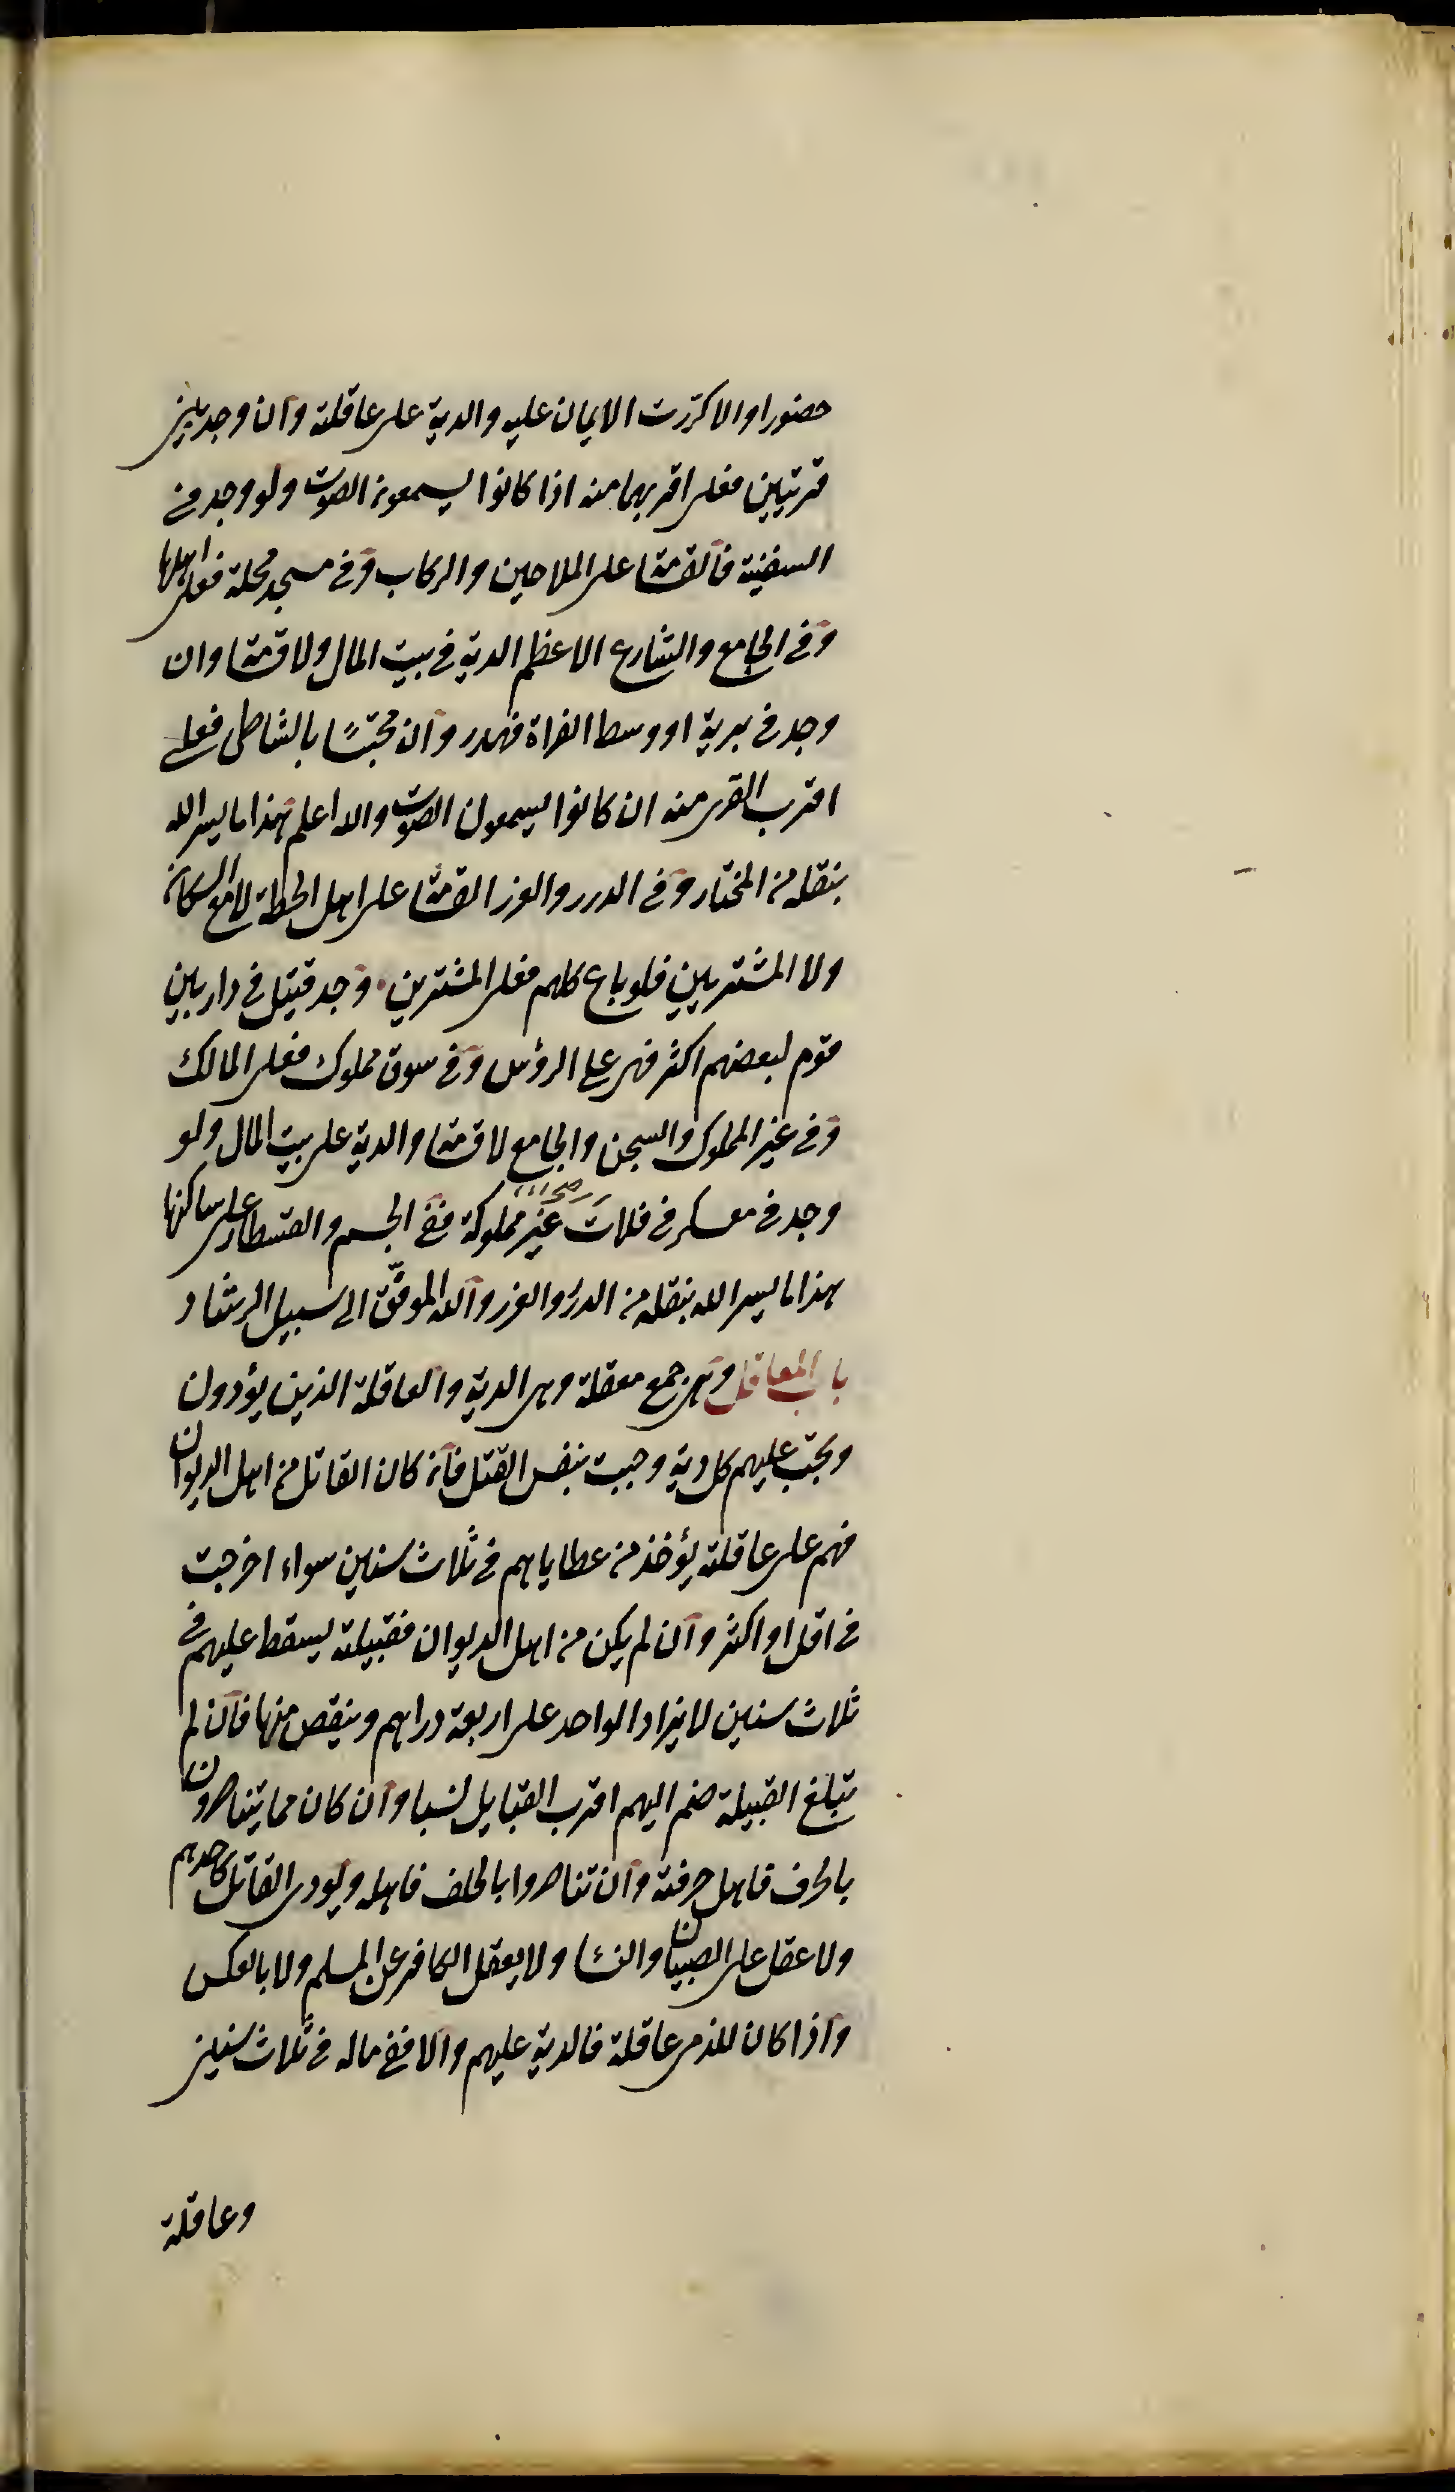 حضورا والا كررت الايمان عليه والدية على عاقلته وان وجد بين
قريتين فعلى اقربهما منه اذا كانوا يسمعون الصوت ولو وجد في
السفينة فالقسامة على الملاحين والركاب وفي مسجد محلة فعلى اهلها
وفي الجامع والشارع الاعظم الدية في بيت المال ولا قسامة وان
وجد في برية او وسط الفراة فهدر وان محتبسًا بالشاطئ فعلى
اقرب القرى منه ان كانوا يسمعون الصوت والله اعلم هذا ما يسر الله
بنقله من المختار وفي الدرر والغرر القسامة على اهل الخطة لا مع السكان
ولا المشتريين فلو باع كلهم فعلى المشترين وجد قتيل في دار بين
قوم لبعضهم اكثر فهي على الرؤس وفي سوق مملوك فعلى المالك
وفي غير المملوك والسجن والجامع لا قسامة والدية على بيت المال ولو
وجد في معسكر في فلات غير مملوكة ففي الخيم والفسطاط على ساكنها
هذا ما يسر الله بنقله من الدرر والغرر والله الموفّق الى سبيل الرشاد
باب المعاقل وهي جمع معقلة وهي الدية والعاقلة الذين يؤدون
ويجب عليهم كل دية وجبت بنفس القتل فان كان القاتل من اهل الديوان
فهم على عاقلته يؤخذ من عطاياهم في ثلاث سنين سواء اخرجت
في اقل او اكثر وان لم يكن من اهل الديوان فقبيلته يسقط عليهم في
ثلاث سنين لا يزاد الواحد على اربعة دراهم وينقص منها فان لم
تبلغ القبيلة ضم اليهم اقرب القبايل نسبا وان كان مما يتناصرون
بالحرف فاهل حرفته وان تناصروا بالحلف فاهله ويودى القاتل كاحدهم
ولا عقل على الصبيان والنساء ولا يعقل الكافر عن المسلم ولا بالعكس
واذا كان للذمى عاقلة فالدية عليهم والا ففي ماله في ثلاث سنين
وعاقلة